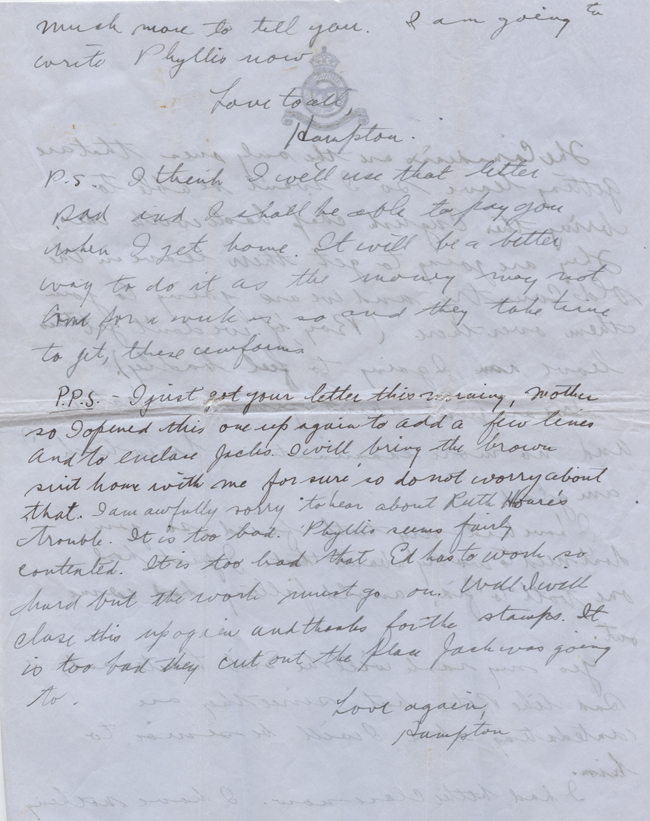 much more to tell you. I am going to
write Phyllis now
Love to all,
Hampton.
P.S. I think I will use that letter
pad and I shall be able to pay you
when I get home. It will be a better
way to do it as the money may not
for a week or so and they take time
to get, these uniforms
P.P.S. - I just got your letter this morning, mother
so I opened this one up again to add a few lines
And to enclose Jack's. I will bring the brown
suit home with me for sure so do not worry about
that. I am awfully sorry to hear about Ruth Hoare's
trouble. It is too bad. Phyllis seems fairly
contented. It is too bad that Ed has to work so
hard but the work must go on. Well I will
close this up again and thanks for the stamps. It
is too bad they cut out the place Jack was going
to.
Love again,
Hampton